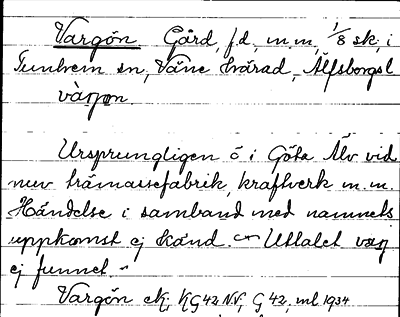 Vargön Gård, f.d., m.m, 1/8 sk. i
Tunhem sn, Väne härad, Älfsborgs l
vàrjøn
Ursprungligen ö i Göta Älv vid
nuv trämassefabrik, kraftverk m.m.
Händelse i samband med namnets
uppkomst ej känd. — Uttalet varj
ej funnet.
Vargön ek, KG 42 NV, G 42, ml 1934